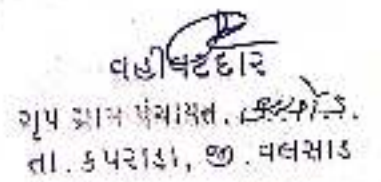 વહીવટદાર
ગૃપ ગ્રામ પંચાયત.
તા. કપરાડા, જી. વલસાડ